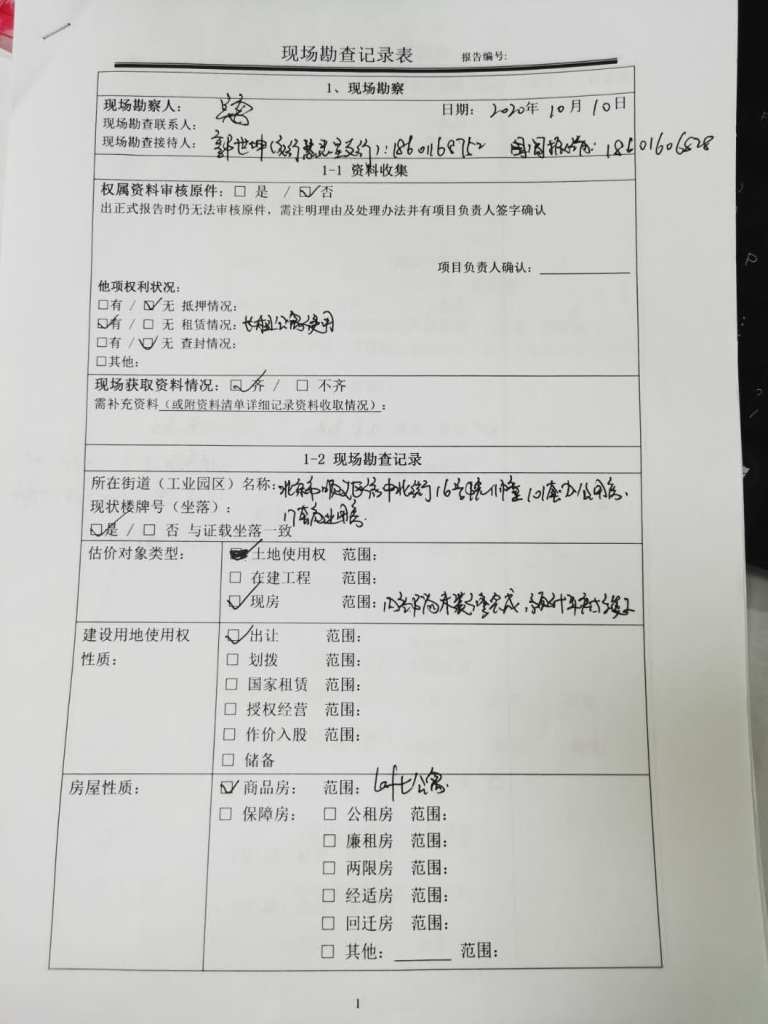 现场勘查记录表 报告编号:
1、现场勘察
现场勘察人：
日期： 2020年 10月 10日
现场勘查联系人：
现场勘查接待人： 世坤
1-1 资料收集
权属资料审核原件：□ 是 / ☑ 否
出正式报告时仍无法审核原件，需注明理由及处理办法并有项目负责人签字确认
项目负责人确认：
他项权利状况：
□有 / ☑ 无 抵押情况：
☑有 / □ 无 租赁情况：长租公寓使用
□有 / ☑ 无 查封情况：
□其他：
现场获取资料情况：☑ 齐 / □ 不齐
需补充资料（或附资料清单详细记录资料收取情况）：
1-2 现场勘查记录
所在街道（工业园区）名称：北京市顺义区 中北街16号院 101套办公用房、
现状楼牌号（坐落）： 17套商业用房
☑是 / □ 否 与证载坐落一致
估价对象类型： ☑ 土地使用权 范围：
□ 在建工程 范围：
☑ 现房 范围：
建设用地使用权 ☑ 出让 范围：
性质： □ 划拨 范围：
□ 国家租赁 范围：
□ 授权经营 范围：
□ 作价入股 范围：
□ 储备
房屋性质： ☑ 商品房： 范围：loft公寓
□ 保障房： □ 公租房 范围：
□ 廉租房 范围：
□ 两限房 范围：
□ 经适房 范围：
□ 回迁房 范围：
□ 其他： 范围：
1